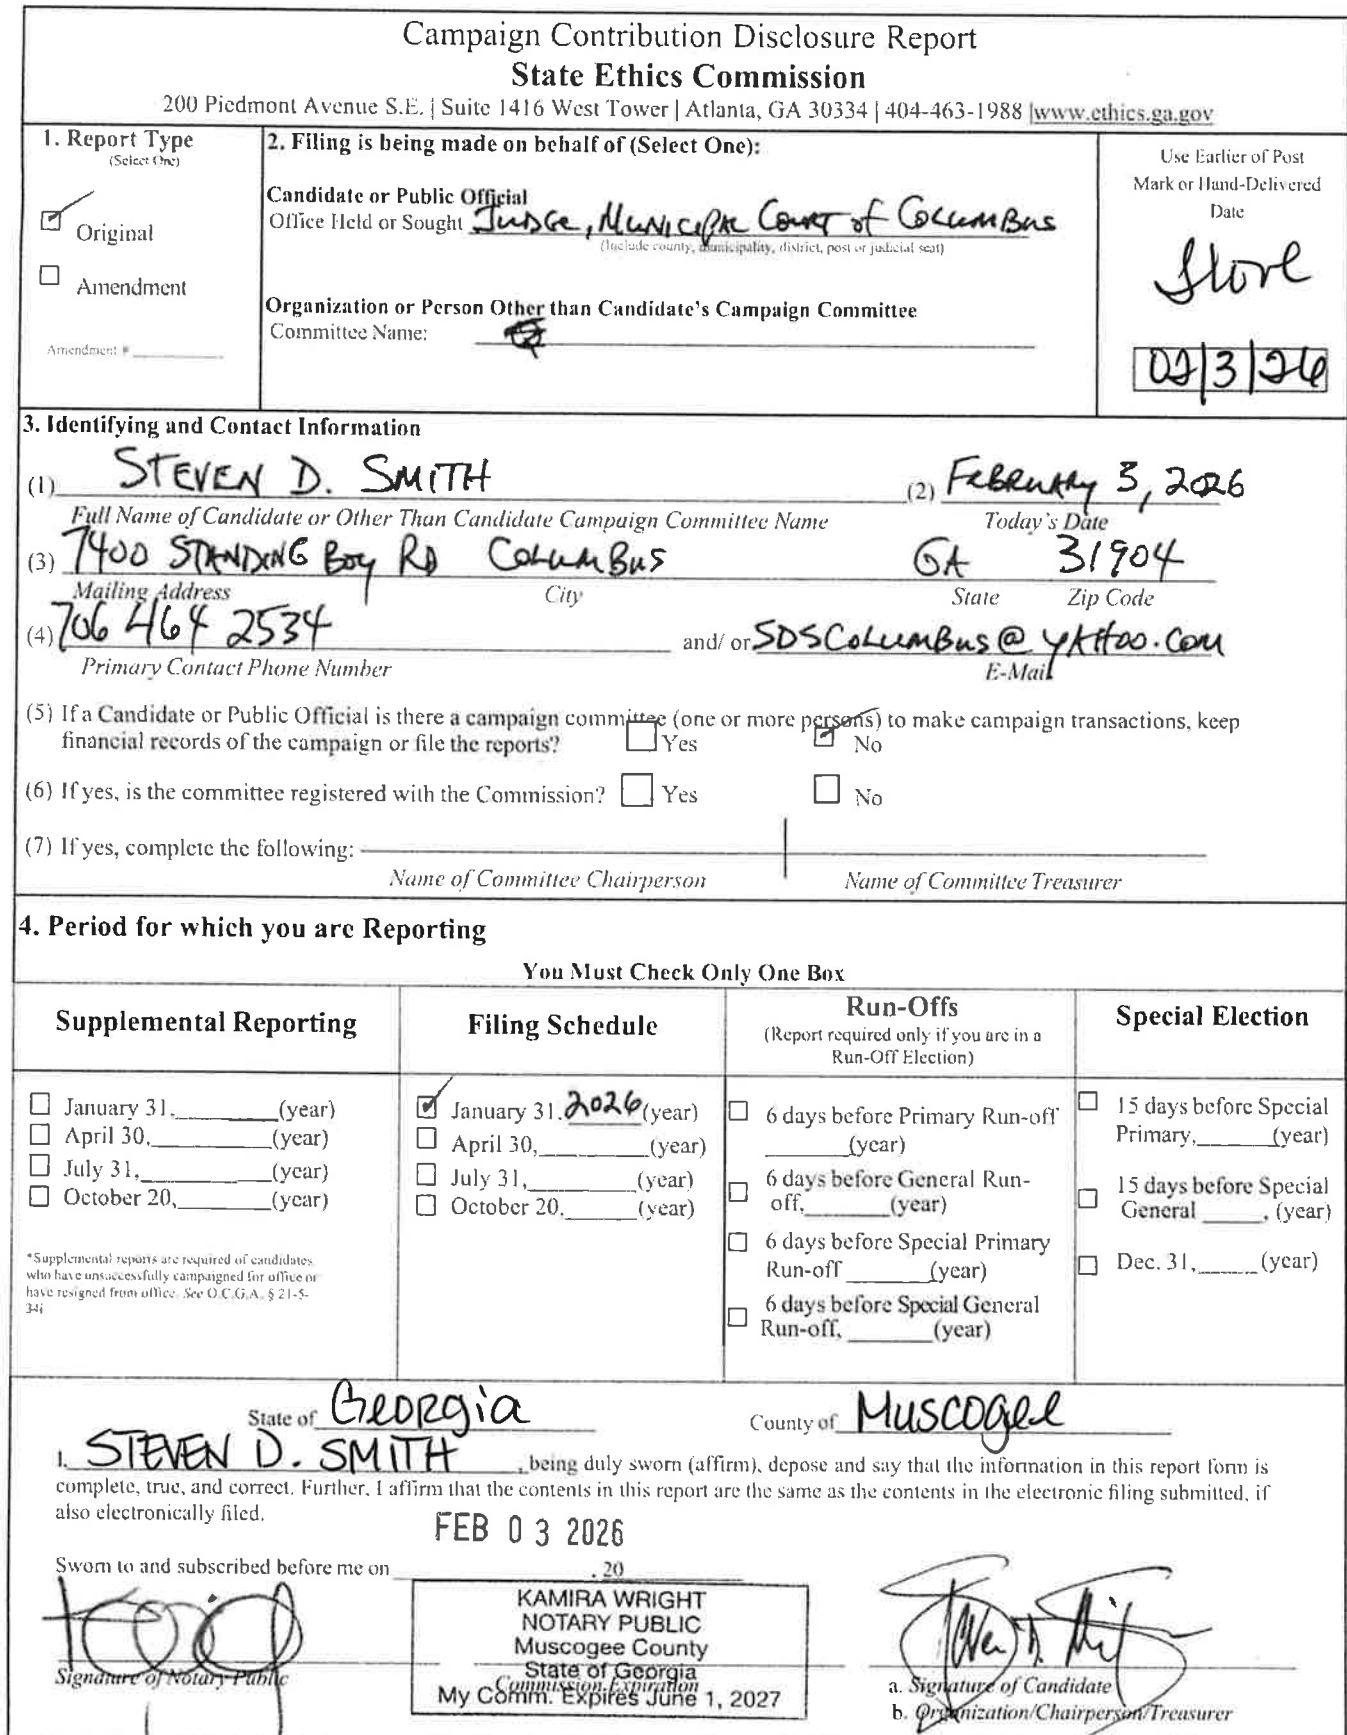 Campaign Contribution Disclosure Report
State Ethics Commission
200 Piedmont Avenue S.E. | Suite 1416 West Tower | Atlanta, GA 30334 | 404-463-1988 |www.ethics.ga.gov
1. Report Type
(Select One)
Original
Amendment
Amendment #
2. Filing is being made on behalf of (Select One):
Candidate or Public Official
Office Held or Sought Judge, Municipal Court of Columbus
(Include county, municipality, district, post or judicial seat)
Organization or Person Other than Candidate's Campaign Committee
Committee Name:
Use Earlier of Post
Mark or Hand-Delivered
Date
02|3|26
3. Identifying and Contact Information
(1) STEVEN D. SMITH (2) February 3, 2026
Full Name of Candidate or Other Than Candidate Campaign Committee Name Today's Date
(3) 7400 STANDING Boy RD Columbus GA 31904
Mailing Address City State Zip Code
(4) 706 464 2534 and/ or SDSColumbus@yahoo.com
Primary Contact Phone Number E-Mail
(5) If a Candidate or Public Official is there a campaign committee (one or more persons) to make campaign transactions, keep
financial records of the campaign or file the reports? Yes No
(6) If yes, is the committee registered with the Commission? Yes No
(7) If yes, complete the following:
Name of Committee Chairperson Name of Committee Treasurer
4. Period for which you are Reporting
You Must Check Only One Box
Supplemental Reporting
January 31,________(year)
April 30,________(year)
July 31,________(year)
October 20,________(year)
*Supplemental reports are required of candidates
who have unsuccessfully campaigned for office or
have resigned from office. See O.C.G.A. § 21-5-
34i
Filing Schedule
January 31, 2026 (year)
April 30,________(year)
July 31,________(year)
October 20,________(year)
Run-Offs
(Report required only if you are in a
Run-Off Election)
6 days before Primary Run-off
______(year)
6 days before General Run-
off,________(year)
6 days before Special Primary
Run-off ________(year)
6 days before Special General
Run-off, ________(year)
Special Election
15 days before Special
Primary,______(year)
15 days before Special
General _____, (year)
Dec. 31,_____(year)
State of Georgia County of Muscogee
I, STEVEN D. SMITH, being duly sworn (affirm), depose and say that the information in this report form is
complete, true, and correct. Further, I affirm that the contents in this report are the same as the contents in the electronic filing submitted, if
also electronically filed.
FEB 03 2026
Sworn to and subscribed before me on , 20
KAMIRA WRIGHT
NOTARY PUBLIC
Muscogee County
State of Georgia
Commission Expiration
My Comm. Expires June 1, 2027
Signature of Notary Public
Steven D. Smith
a. Signature of Candidate
b. Organization/Chairperson/Treasurer